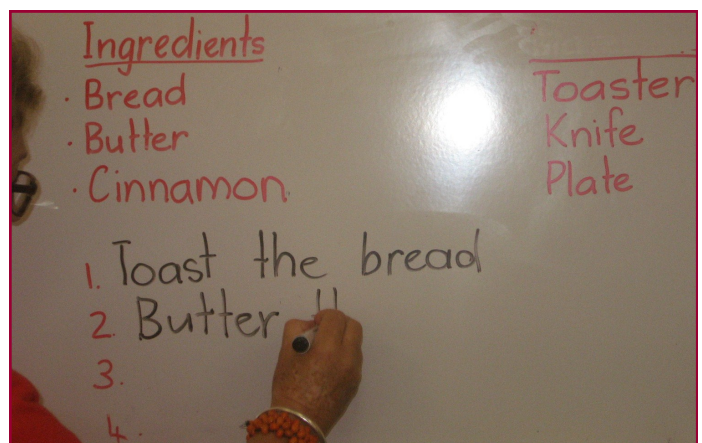 Ingredients
· Bread
· Butter
· Cinnamon
Toaster
Knife
Plate
1. Toast the bread
2. Butter
3.
4.